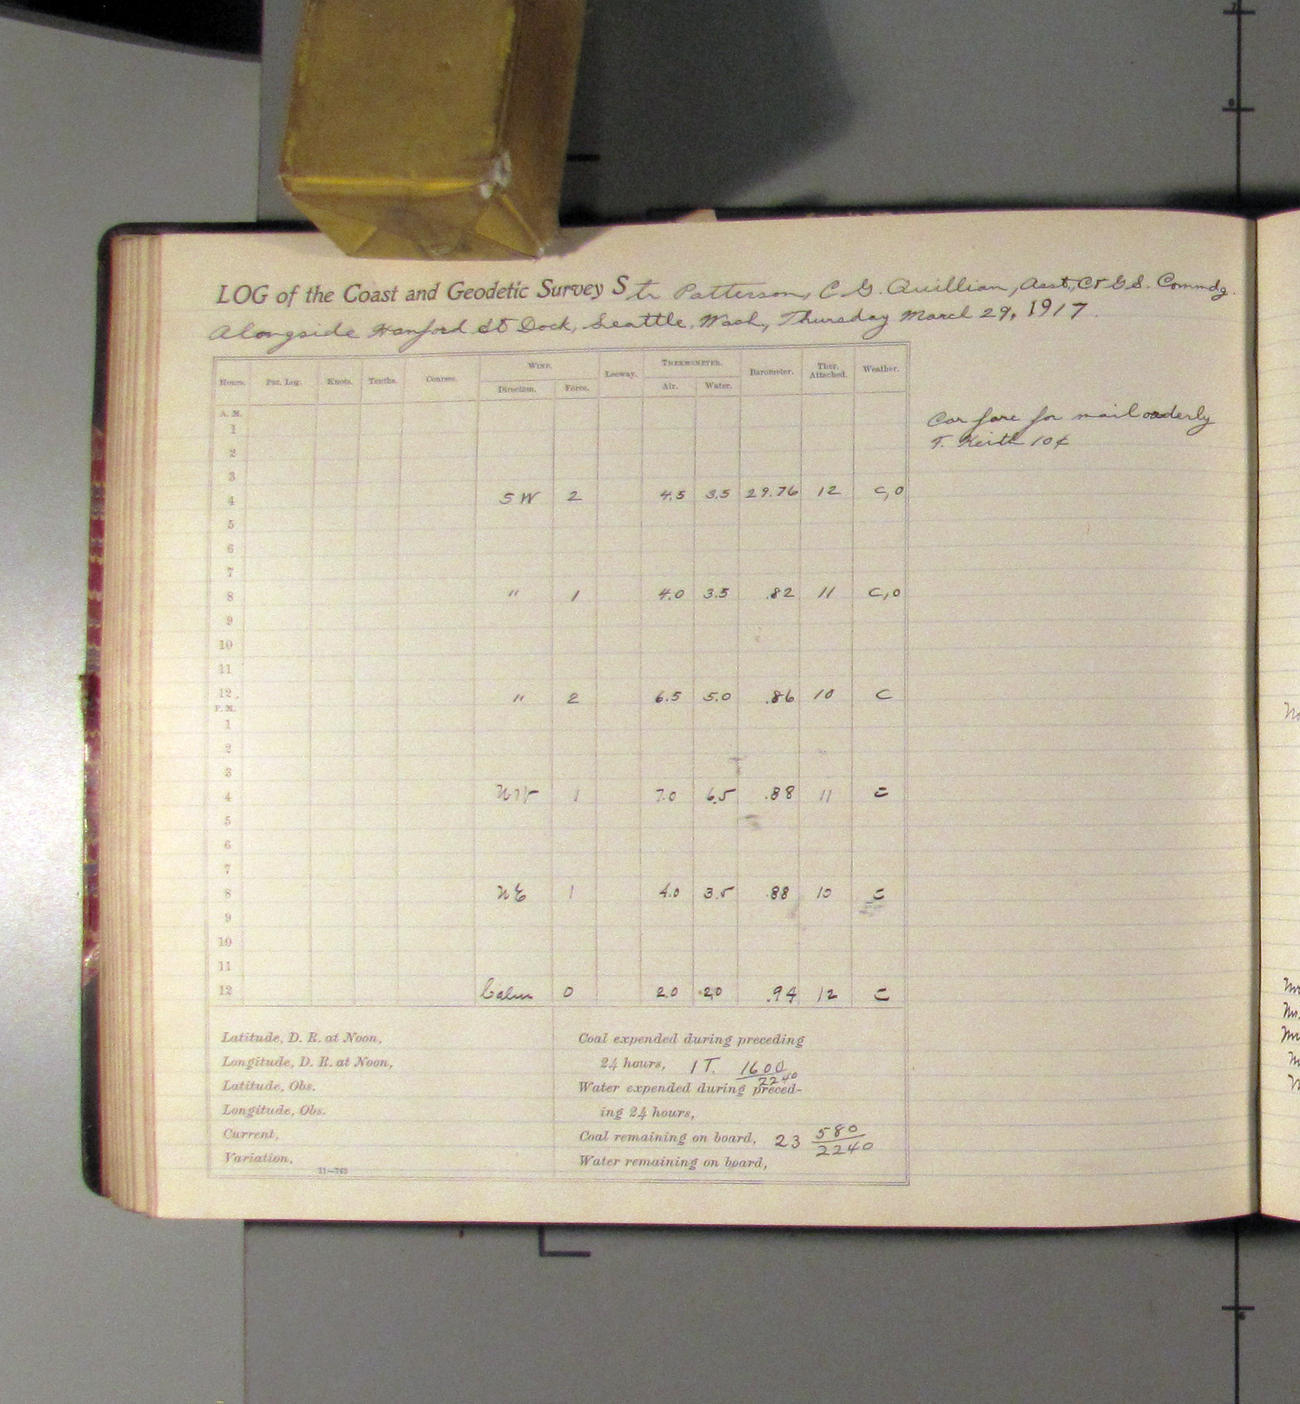 LOG of the Coast and Geodetic Survey Str Patterson, C. G. Quillian, Asst, C & G.S. Commdg.
Alongside Hanford St Dock, Seattle, Wash, Thursday March 29, 1917.
Hours. Pat. Log. Knots. Tenths. Course. WIND. Direction. Force. Leeway. THERMOMETER. Air. Water. Barometer. Ther. Attached. Weather.
A. M.
Car fare for mail orderly
1
T. Keith 10¢
2
3
4 SW 2 4.5 3.5 29.76 12 c,o
5
6
7
8 " 1 4.0 3.5 .82 11 c,o
9
10
11
12 " 2 6.5 5.0 .86 10 c
P. M.
1
2
3
4 NW 1 7.0 6.5 .88 11 c
5
6
7
8 NE 1 4.0 3.5 .88 10 c
9
10
11
12 Calm 0 2.0 2.0 .94 12 c
Latitude, D. R. at Noon,
Longitude, D. R. at Noon,
Latitude, Obs.
Longitude, Obs.
Current,
Variation,
11—763
Coal expended during preceding
24 hours, 1 T. 1600/2240
Water expended during preced-
ing 24 hours,
Coal remaining on board, 23 580/2240
Water remaining on board,